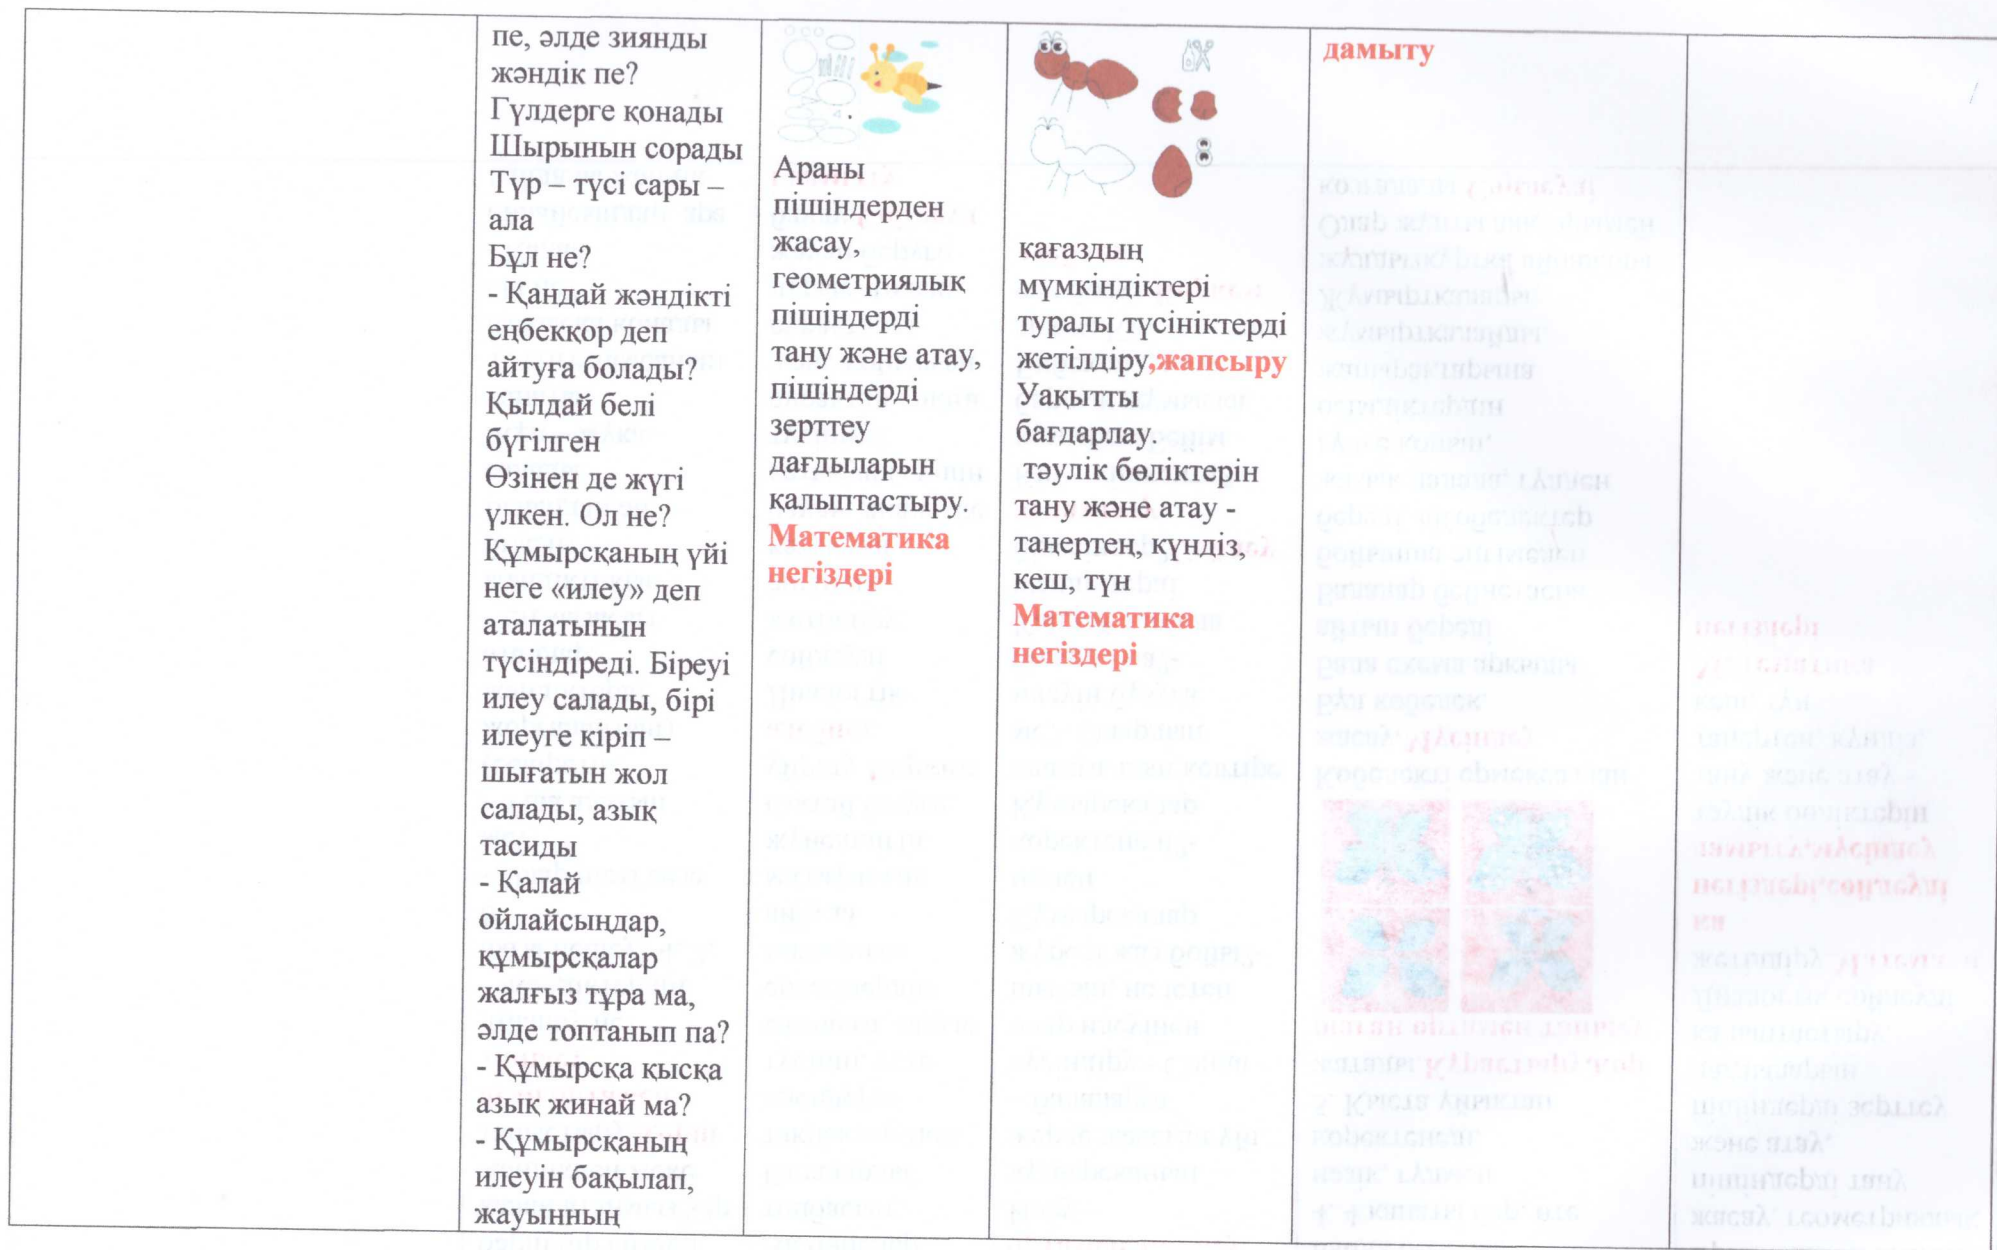 пе, әлде зиянды
жәндік пе?
Гүлдерге қонады
Шырынын сорады
Түр – түсі сары –
ала
Бұл не?
- Қандай жәндікті
еңбекқор деп
айтуға болады?
Қылдай белі
бүгілген
Өзінен де жүгі
үлкен. Ол не?
Құмырсқаның үйі
неге «илеу» деп
аталатынын
түсіндіреді. Біреуі
илеу салады, бірі
илеуге кіріп –
шығатын жол
салады, азық
тасиды
- Қалай
ойлайсыңдар,
құмырсқалар
жалғыз тұра ма,
әлде топтанып па?
- Құмырсқа қысқа
азық жинай ма?
- Құмырсқаның
илеуін бақылап,
жауынның
Араны
пішіндерден
жасау,
геометриялық
пішіндерді
тану және атау,
пішіндерді
зерттеу
дағдыларын
қалыптастыру.
Математика
негіздері
қағаздың
мүмкіндіктері
туралы түсініктерді
жетілдіру,жапсыру
Уақытты
бағдарлау.
тәулік бөліктерін
тану және атау -
таңертең, күндіз,
кеш, түн
Математика
негіздері
дамыту